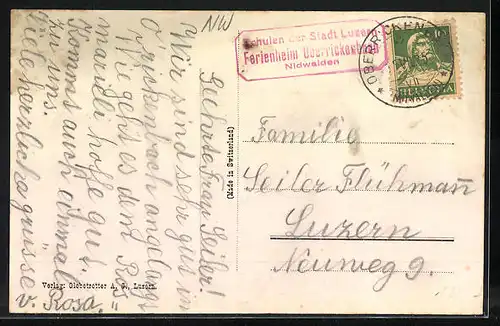 NW
Schulen der Stadt Luzern
Ferienheim Oberrickenbach
Nidwalden
OBERRICKENBACH
10
HELVETIA
Geehrte Frau Seiler!
Wir sind sehr gut in
O'rickenbach anglangt
Wie geht es dem Ros
mardli hoffe gut
Komms auch einmal
zu uns.
Viele herzliche grüsse
v. Rosa.
(Made in Switzerland)
Verlag: Globetrotter A. G., Luzern.
Familie
Seiler Flühmann
Luzern
Neuweg 9.